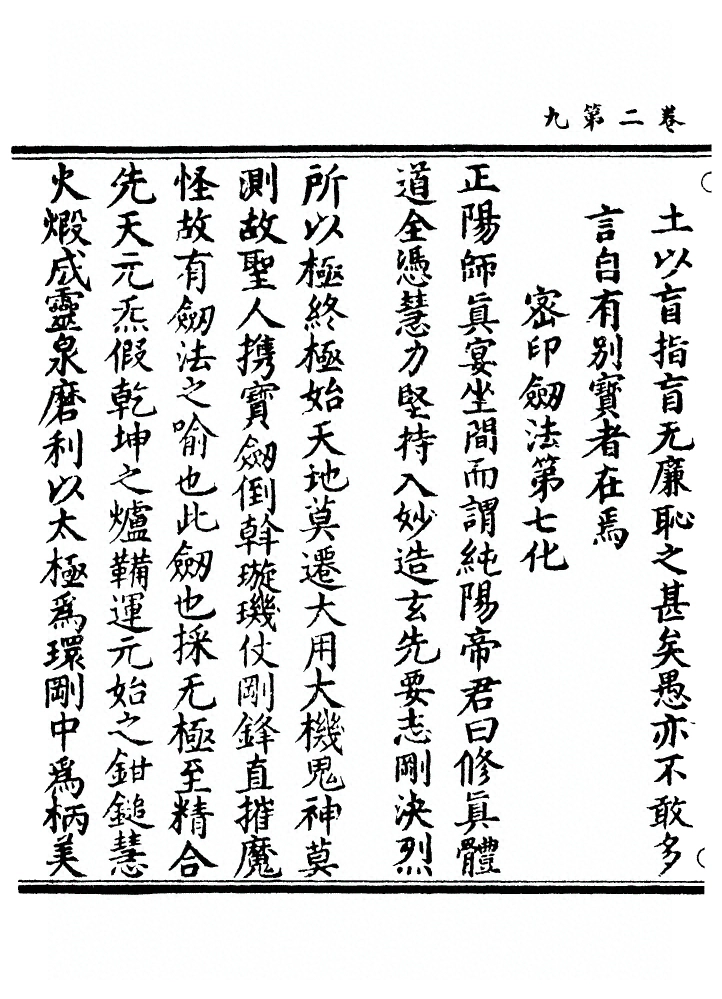 卷二第九
土以盲指盲无廉恥之甚矣愚亦不敢多
言自有別寶者在焉
密印劔法第七化
正陽師眞宴坐間而謂純陽帝君曰修眞體
道全憑慧力堅持入妙造玄先要志剛決烈
所以極終極始天地莫遷大用大機鬼神莫
測故聖人携寶劔倒斡璇璣仗剛鋒直摧魔
怪故有劔法之喻也此劔也採无極至精合
先天元炁假乾坤之爐鞴運元始之鉗鎚慧
火煅成靈泉磨利以太極爲環剛中爲柄美